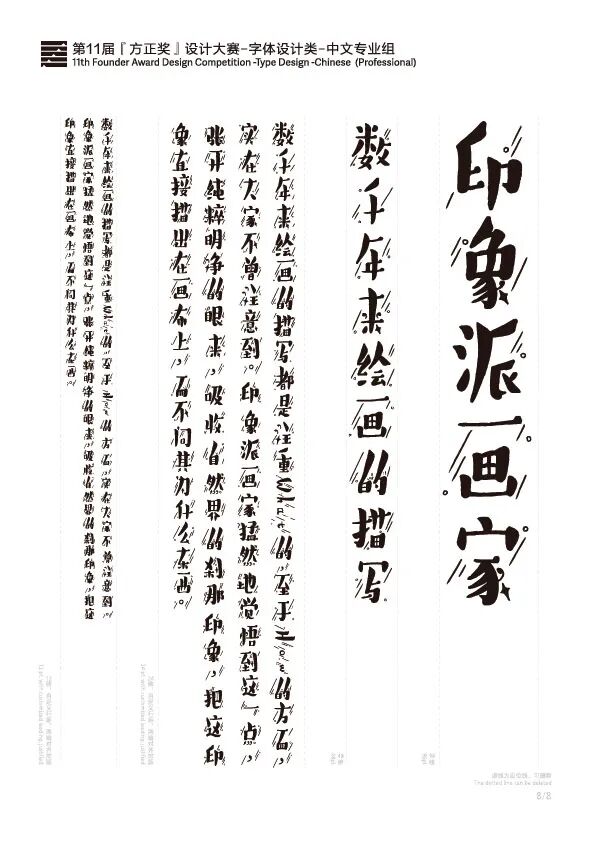 第11届『方正奖』设计大赛-字体设计类-中文专业组
11th Founder Award Design Competition -Type Design -Chinese (Professional)
印象派画家
数千年来绘画的描写
数千年来绘画的描写都是注重What的至于How的方面，
实在大家不曾注意到。印象派画家猛然地觉悟到这一点，
张开纯粹明净的眼来，吸收自然界的刹那印象，把这印
象直接描出在画布上，而不问其为什么东西。
数千年来绘画的描写都是注重What的至于How的方面实在大家不曾注意到。
印象派画家猛然地觉悟到这一点，张开纯粹明净的眼来吸收自然界的刹那印象，把这
印象直接描出在画布上，而不问其为什么东西。
虚线为定位线，可删除
The dotted line can be deleted
8/8